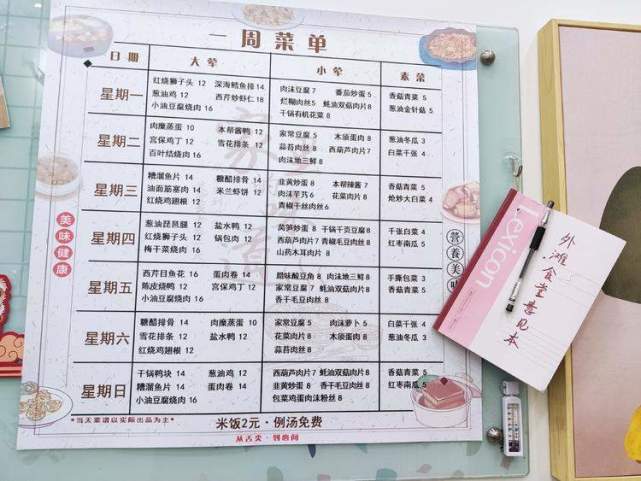 一周菜单
日期 大荤 小荤 素菜
星期一
红烧狮子头 12 深海鳕鱼排 14
葱油鸡 12 西芹炒虾仁 18
小油豆腐烧肉 16
肉沫豆腐 7 番茄炒蛋 5
烂糊肉丝 5 蚝油双菇肉片 8
干锅有机花菜 8
香菇青菜 5
葱油金针菇 5
星期二
肉糜蒸蛋 10 本帮酱鸭 12
宫保鸡丁 12 雪花排条 12
百叶结烧肉 16
家常豆腐 5 木须蛋肉 8
蒜苔肉丝 8 西葫芦肉片 7
肉沫地三鲜 8
葱油冬瓜 3
白菜千张 4
星期三
糟溜鱼片 14 糖醋排骨 14
油面筋塞肉 14 米兰虾饼 12
红烧鸡翅根 12
韭黄炒蛋 8 本帮辣酱 7
肉沫芋艿 6 花菜肉片 8
青椒干丝肉丝 6
香菇青菜 5
炝炒大白菜 4
星期四
葱油琵琶腿 12 盐水鸭 12
红烧狮子头 12 锅包肉 12
梅干菜烧肉 16
莴笋炒蛋 8 干锅千页豆腐 8
西葫芦肉片 7 青椒毛豆肉丝 8
山药木耳肉片 8
千张白菜 4
红枣南瓜 5
星期五
西芹目鱼花 14 蛋肉卷 14
陈皮烧鸭 12 宫保鸡丁 12
小油豆腐烧肉 16
腊味酸豆角 8 肉沫地三鲜 8
家常豆腐 5 蚝油双菇肉片 8
香干毛豆肉丝 8
手撕包菜 3
香菇青菜 5
星期六
糖醋排骨 14 肉糜蒸蛋 10
雪花排条 12 盐水鸭 12
红烧鸡翅根 12
家常豆腐 5 肉沫萝卜 5
花菜肉片 8 木须蛋肉 8
蒜苔肉丝 8
白菜千张 4
葱油冬瓜 3
星期日
干锅鸭块 14 葱油鸡 12
糟溜鱼片 14 蛋肉卷 14
小油豆腐烧肉 16
西葫芦肉片 7 蚝油双菇肉片 8
韭黄炒蛋 8 香干毛豆肉丝 8
包菜鸡蛋肉沫粉丝 8
香菇青菜 5
红枣南瓜 5
美味健康
营养美味
*当天菜谱以实际出品为主*
米饭2元·例汤免费
从舌尖·到心间
lexicon
外滩食堂意见本